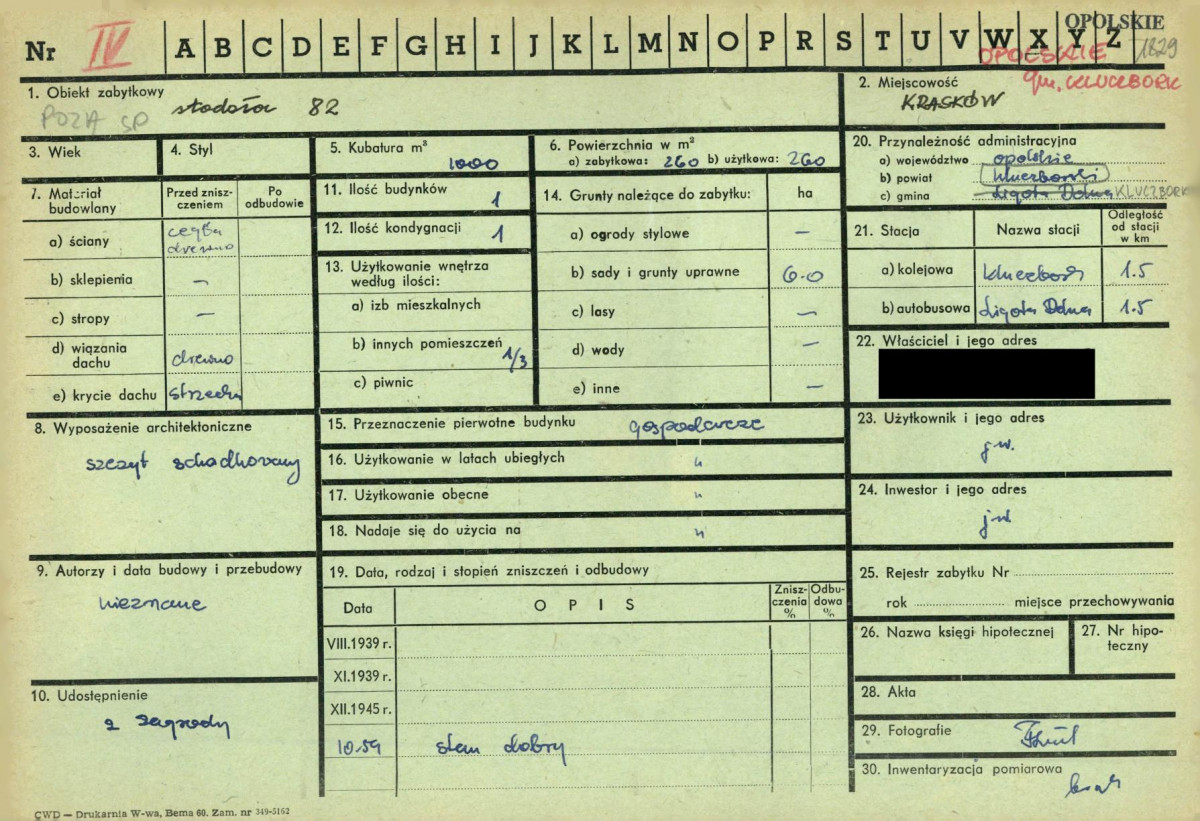 Nr IV A B C D E F G H I J K L M N O P R S T U V W X Y Z
OPOLSKIE
1829
OPOLSKIE
gm. KLUCZBORK
1. Obiekt zabytkowy
stodoła 82
POZA SP
2. Miejscowość
KRASKÓW
3. Wiek
4. Styl
5. Kubatura m³
1000
6. Powierzchnia w m²
a) zabytkowa: 260 b) użytkowa: 260
20. Przynależność administracyjna
a) województwo opolskie
b) powiat kluczborski
c) gmina Ligota Dolna KLUCZBORK
7. Materiał budowlany
Przed zniszczeniem
Po odbudowie
a) ściany cegła
drewno
b) sklepienia —
c) stropy —
d) wiązania dachu drewno
e) krycie dachu strzecha
11. Ilość budynków 1
12. Ilość kondygnacji 1
13. Użytkowanie wnętrza
według ilości:
a) izb mieszkalnych
b) innych pomieszczeń 1/3
c) piwnic
14. Grunty należące do zabytku: ha
a) ogrody stylowe —
b) sady i grunty uprawne 6.0
c) lasy —
d) wody —
e) inne —
21. Stacja
Nazwa stacji
Odległość
od stacji
w km
a) kolejowa Kluczbork 1.5
b) autobusowa Ligota Dolna 1.5
22. Właściciel i jego adres
8. Wyposażenie architektoniczne
szczyt schodkowany
15. Przeznaczenie pierwotne budynku gospodarcze
16. Użytkowanie w latach ubiegłych "
17. Użytkowanie obecne "
18. Nadaje się do użycia na "
23. Użytkownik i jego adres
j.w.
24. Inwestor i jego adres
j.w.
9. Autorzy i data budowy i przebudowy
nieznane
19. Data, rodzaj i stopień zniszczeń i odbudowy
Data
OPIS
Zniszczenia %
Odbudowa %
VIII.1939 r.
XI.1939 r.
XII.1945 r.
10.59 stan dobry
25. Rejestr zabytku Nr
rok miejsce przechowywania
26. Nazwa księgi hipotecznej
27. Nr hipoteczny
10. Udostępnienie
z zagrody
28. Akta
29. Fotografie
30. Inwentaryzacja pomiarowa
brak
CWD — Drukarnia W-wa, Bema 60. Zam. nr 349-5162